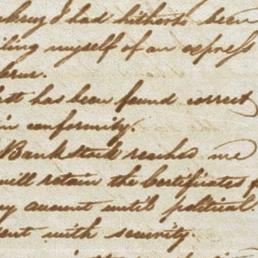 I had hitherto been
myself of an express

has been found correct
in conformity.
Bank stock reached me
will retain the certificates
account until political
with security.